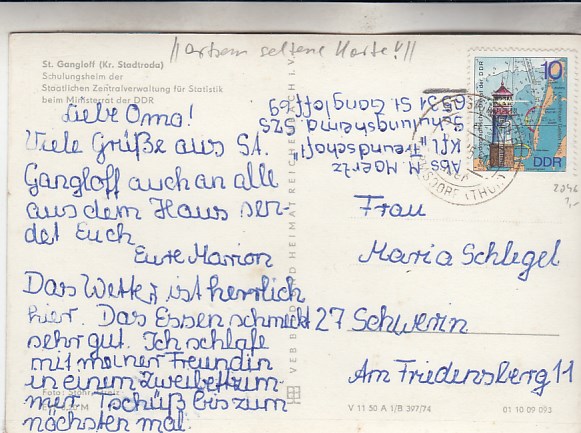 St. Gangloff (Kr. Stadtroda)
Schulungsheim der
Staatlichen Zentralverwaltung für Statistik
beim Ministerrat der DDR
seltene Karte!
Liebe Oma!
Viele Grüße aus St.
Gangloff auch an alle
aus dem Haus sen-
det Euch
Eure Marion
Das Wetter ist herrlich
hier. Das Essen schmeckt
sehr gut. Ich schlafe
mit meiner Freundin
in einem Zweibettzim-
mer. Tschüß bis zum
nächsten mal.
Abs. M. Haertz
KfL "Freundschaft"
Schulungsheim d. SZS
6531 St. Gangloff 69
10
DDR
HERMSDORF (THÜR)
Frau
Maria Schlegel
27 Schwerin
Am Friedensberg 11
VEB BILD UND HEIMAT REICHENBACH I. V.
V 11 50 A 1/B 397/74
01 10 09 093